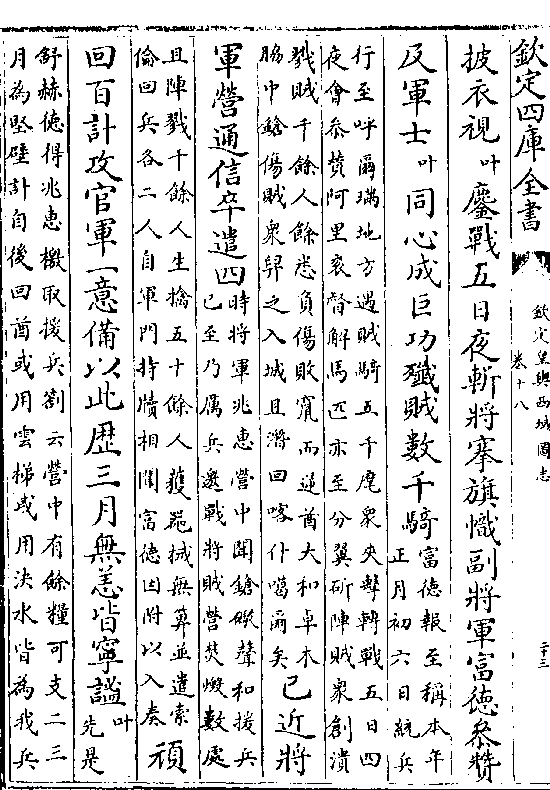 欽定四庫全書
欽定皇輿西域圖志
卷十八
二十三
披衣視叶鏖戰五日夜斬將搴旗幟副將軍富德參贊
及軍士叶同心成巨功殱賊數千騎
富德報至稱本年
正月初六日統兵
行至呼爾璊地方遇賊騎五千麾衆夾擊轉戰五日四
夜會參贊阿里衮督解馬匹亦至分翼斫陣賊衆創潰
戮賊千餘人餘悉負傷敗竄而逆酋大和卓木
脇中鎗傷賊衆舁之入城且潛回喀什噶爾矣
已近將
軍營通信卒遣四
時將軍兆惠營中聞鎗礟聲和援兵
已至乃厲兵邀戰將賊營焚燬數處
且陣戮千餘人生擒五十餘人獲器械無算並遣索
倫回兵各二人自軍門持牘相聞富德因附以入奏
頑
回百計攻官軍一意備以此歴三月無恙皆寧謐叶
先是
舒赫德得兆惠檄取援兵劄云營中有餘糧可支二三
月為堅壁計自後回酋或用雲梯或用決水皆為我兵